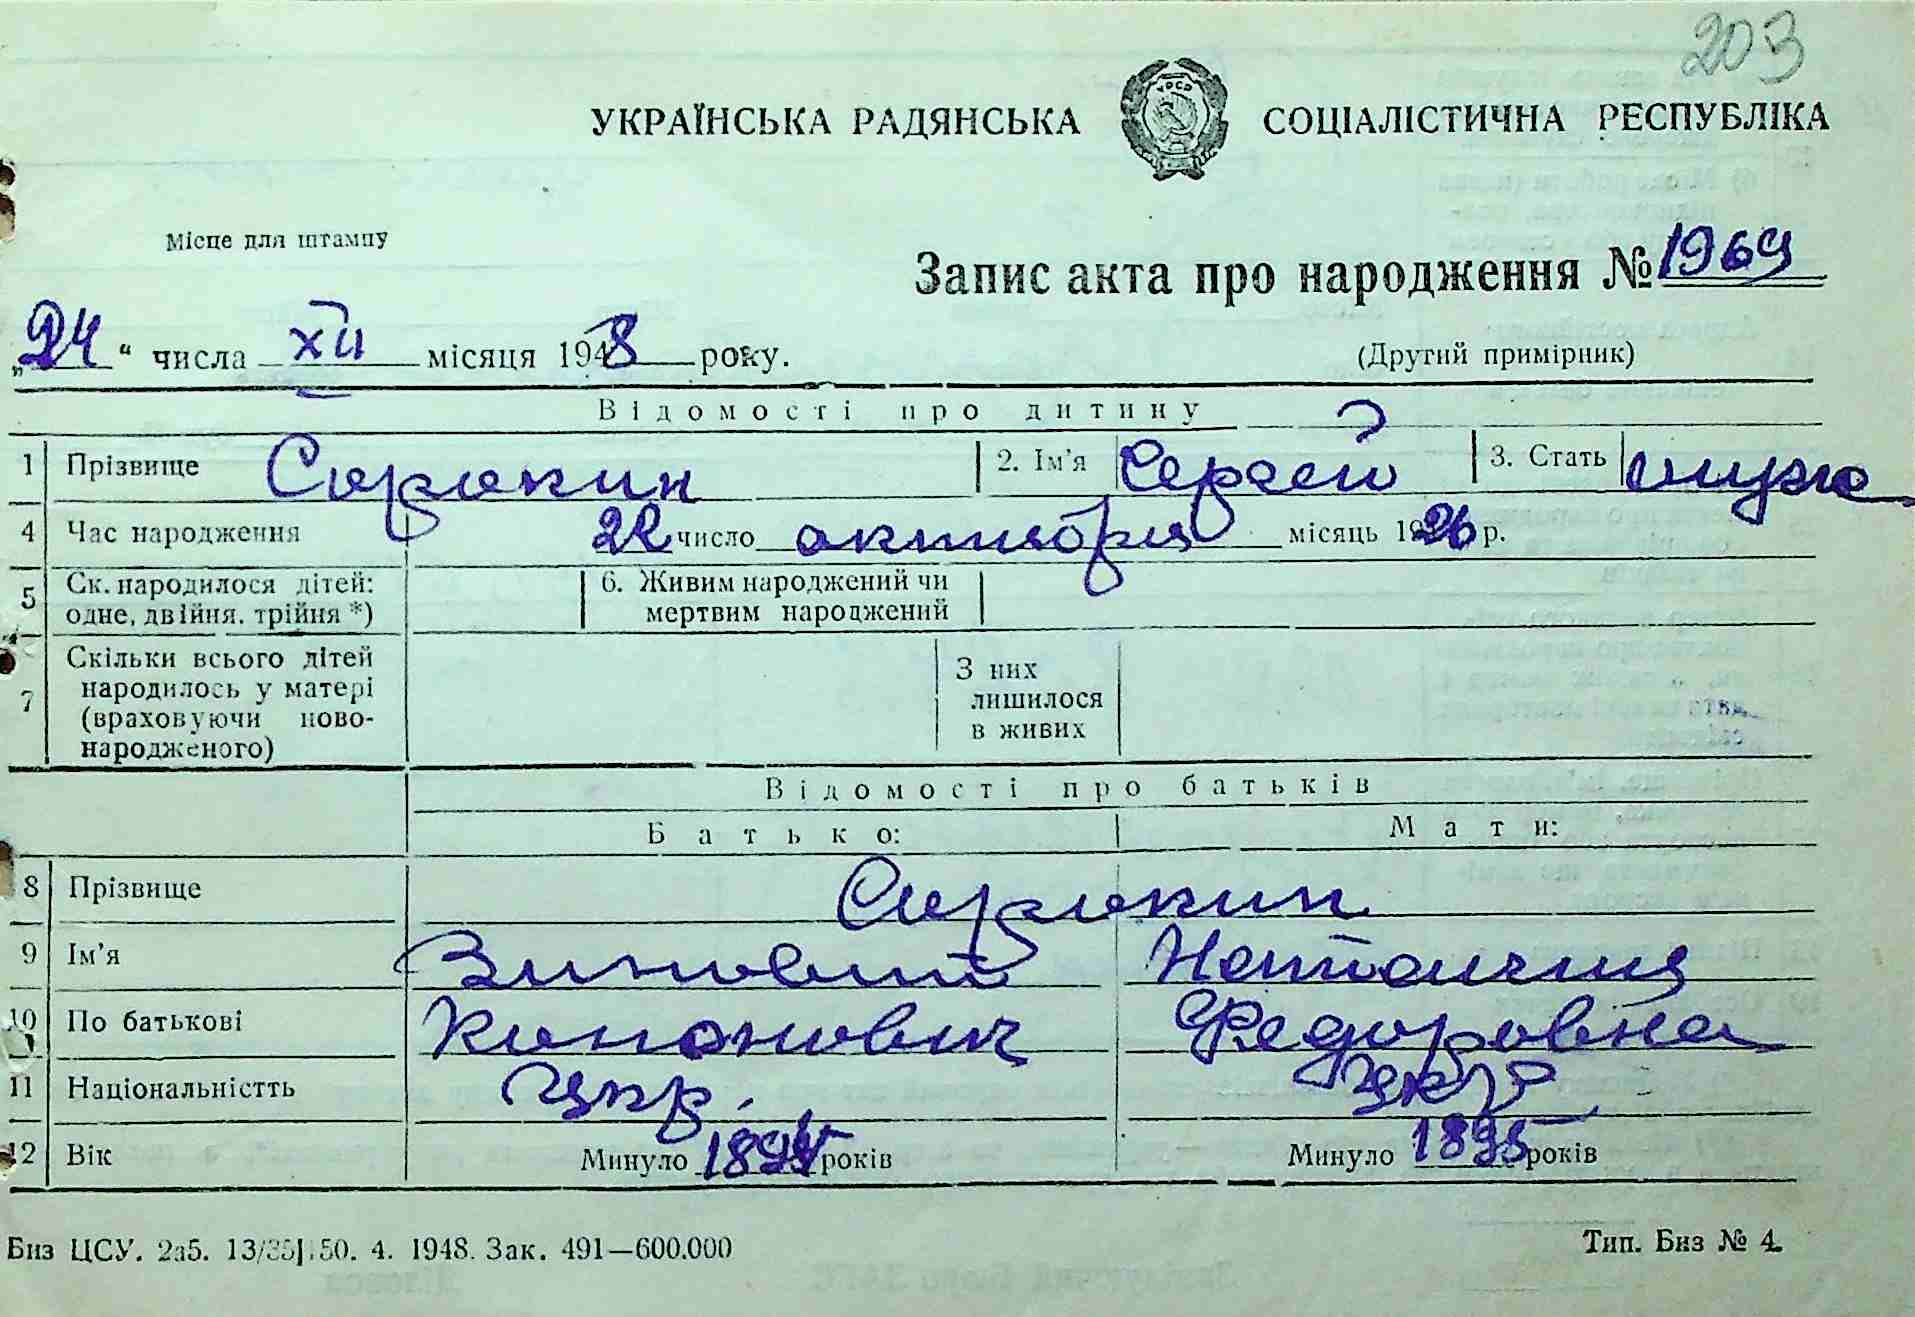 203
УКРАЇНСЬКА РАДЯНСЬКА СОЦІАЛІСТИЧНА РЕСПУБЛІКА
УРСР
Місце для штампу
Запис акта про народження № 1969
„24“ числа XII місяця 1948 року.
(Другий примірник)
Відомості про дитину
1 Прізвище Сорокин 2. Ім'я Сергей 3. Стать муж
4 Час народження 22 число октября місяць 1926 р.
5 Ск. народилося дітей: одне, двійня, трійня *) 6. Живим народжений чи мертвим народжений
7 Скільки всього дітей народилось у матері (враховуючи ново-народженого) З них лишилося в живих
Відомості про батьків
Батько: Мати:
8 Прізвище Сорокин
9 Ім'я Зиновий Наталия
10 По батькові Кононович Федоровна
11 Національністть Укр. Укр
12 Вік Минуло років Минуло 1895 років
Биз ЦСУ. 2а5. 13/35 50. 4. 1948. Зак. 491—600.000 Тип. Биз № 4.